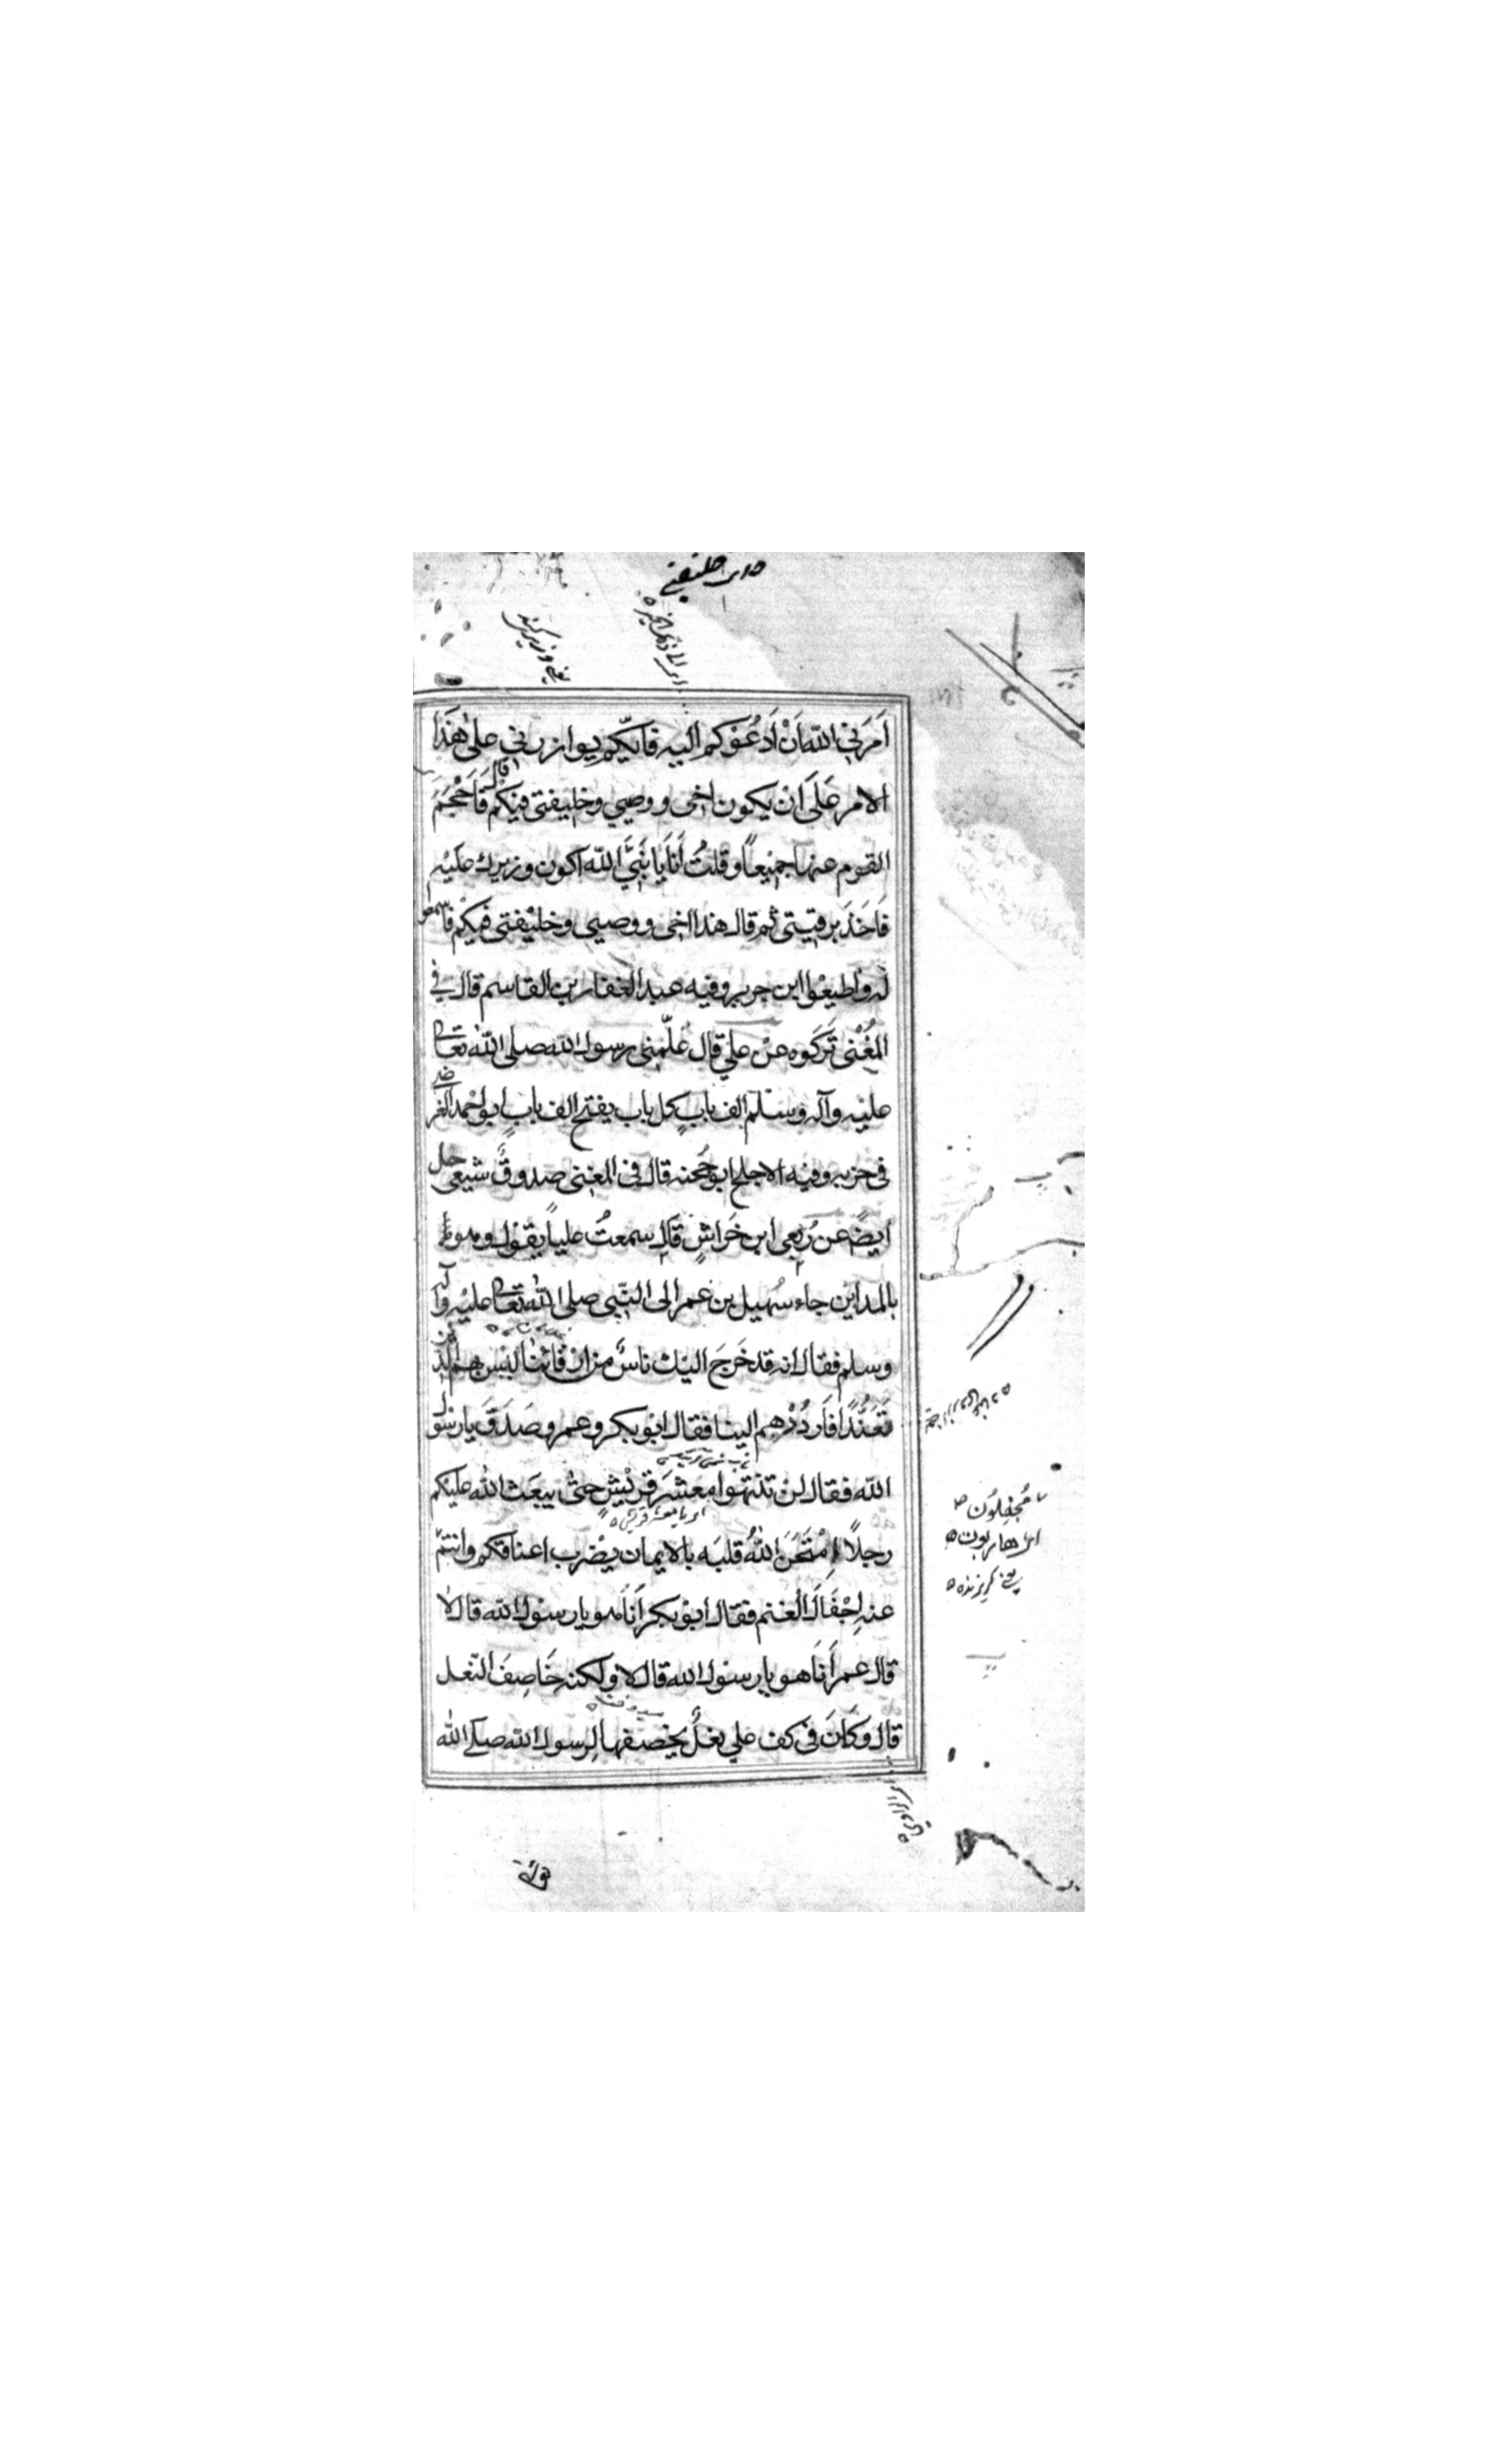 اَمَرَنِي الله اَنْ اَدْعُوَكم اليه فايّكم يوازرني على هَذا
الامر عَلَى ان يكون اخى ووصيي وخليفتى فيكم قال فَاَحْجَمَ
القوم عنها جميعاً وقلتُ اَنَا يَا نَبِىَّ الله اكون وزيرك عليه
فَاَخَذَ برقبتى ثم قال هذا اخى ووصيي وخليفتى فيكم فاسمعوا
له واطيعوا ابن جرير وفيه عبد الغفار بن القاسم قال في
المُغْنى تَرَكوه عن علي قال عَلّمنى رسول الله صلى الله تعالى
عليه وآله وسلم الف بابٍ كل باب يفتح الف بابٍ ابو احمد الفرضى
فى جزءه وفيه الاجلح ابو حُجية قال فى المغنى صدوقٌ شيعى جل
ايضً عن رُبعى ابن خَراشٍ قال سمعتُ علياً يقول وهو
بالمداين جاء سُهيل بن عمر الى النّبى صلى الله تعالى عليه وآله
وسلم فقال انه قد خَرَجَ اليك ناسٌ من ارقائنا ليس بهم الدين
تَعَنُّدًا فَاردُدْهم الينا فقال ابو بكر وعمر وصَدَقَ يا رسول
الله فقال لن تنتهوا معشرَ قريشٍ حتى يبعَث الله عليكم
رجلاً اِمْتَحَنَ اللهُ قلبَه بالايمان يضْرب اعناقكم وانتم
عنه اِجْفَالَ الغنم فقال ابو بكر اَنَا هو يا رسول الله قال لا
قال عمر اَنَا هو يا رسول الله قال لا ولكنه خَاصِفَ النّعل
قال وكَانَ فى كف علي نعلٌ يخصفها لِرسول الله صلى الله
مُجفِلُون
اى هاربون
يعنے گريزنده
يعنے وزير كيست
اى يا معشر قريش